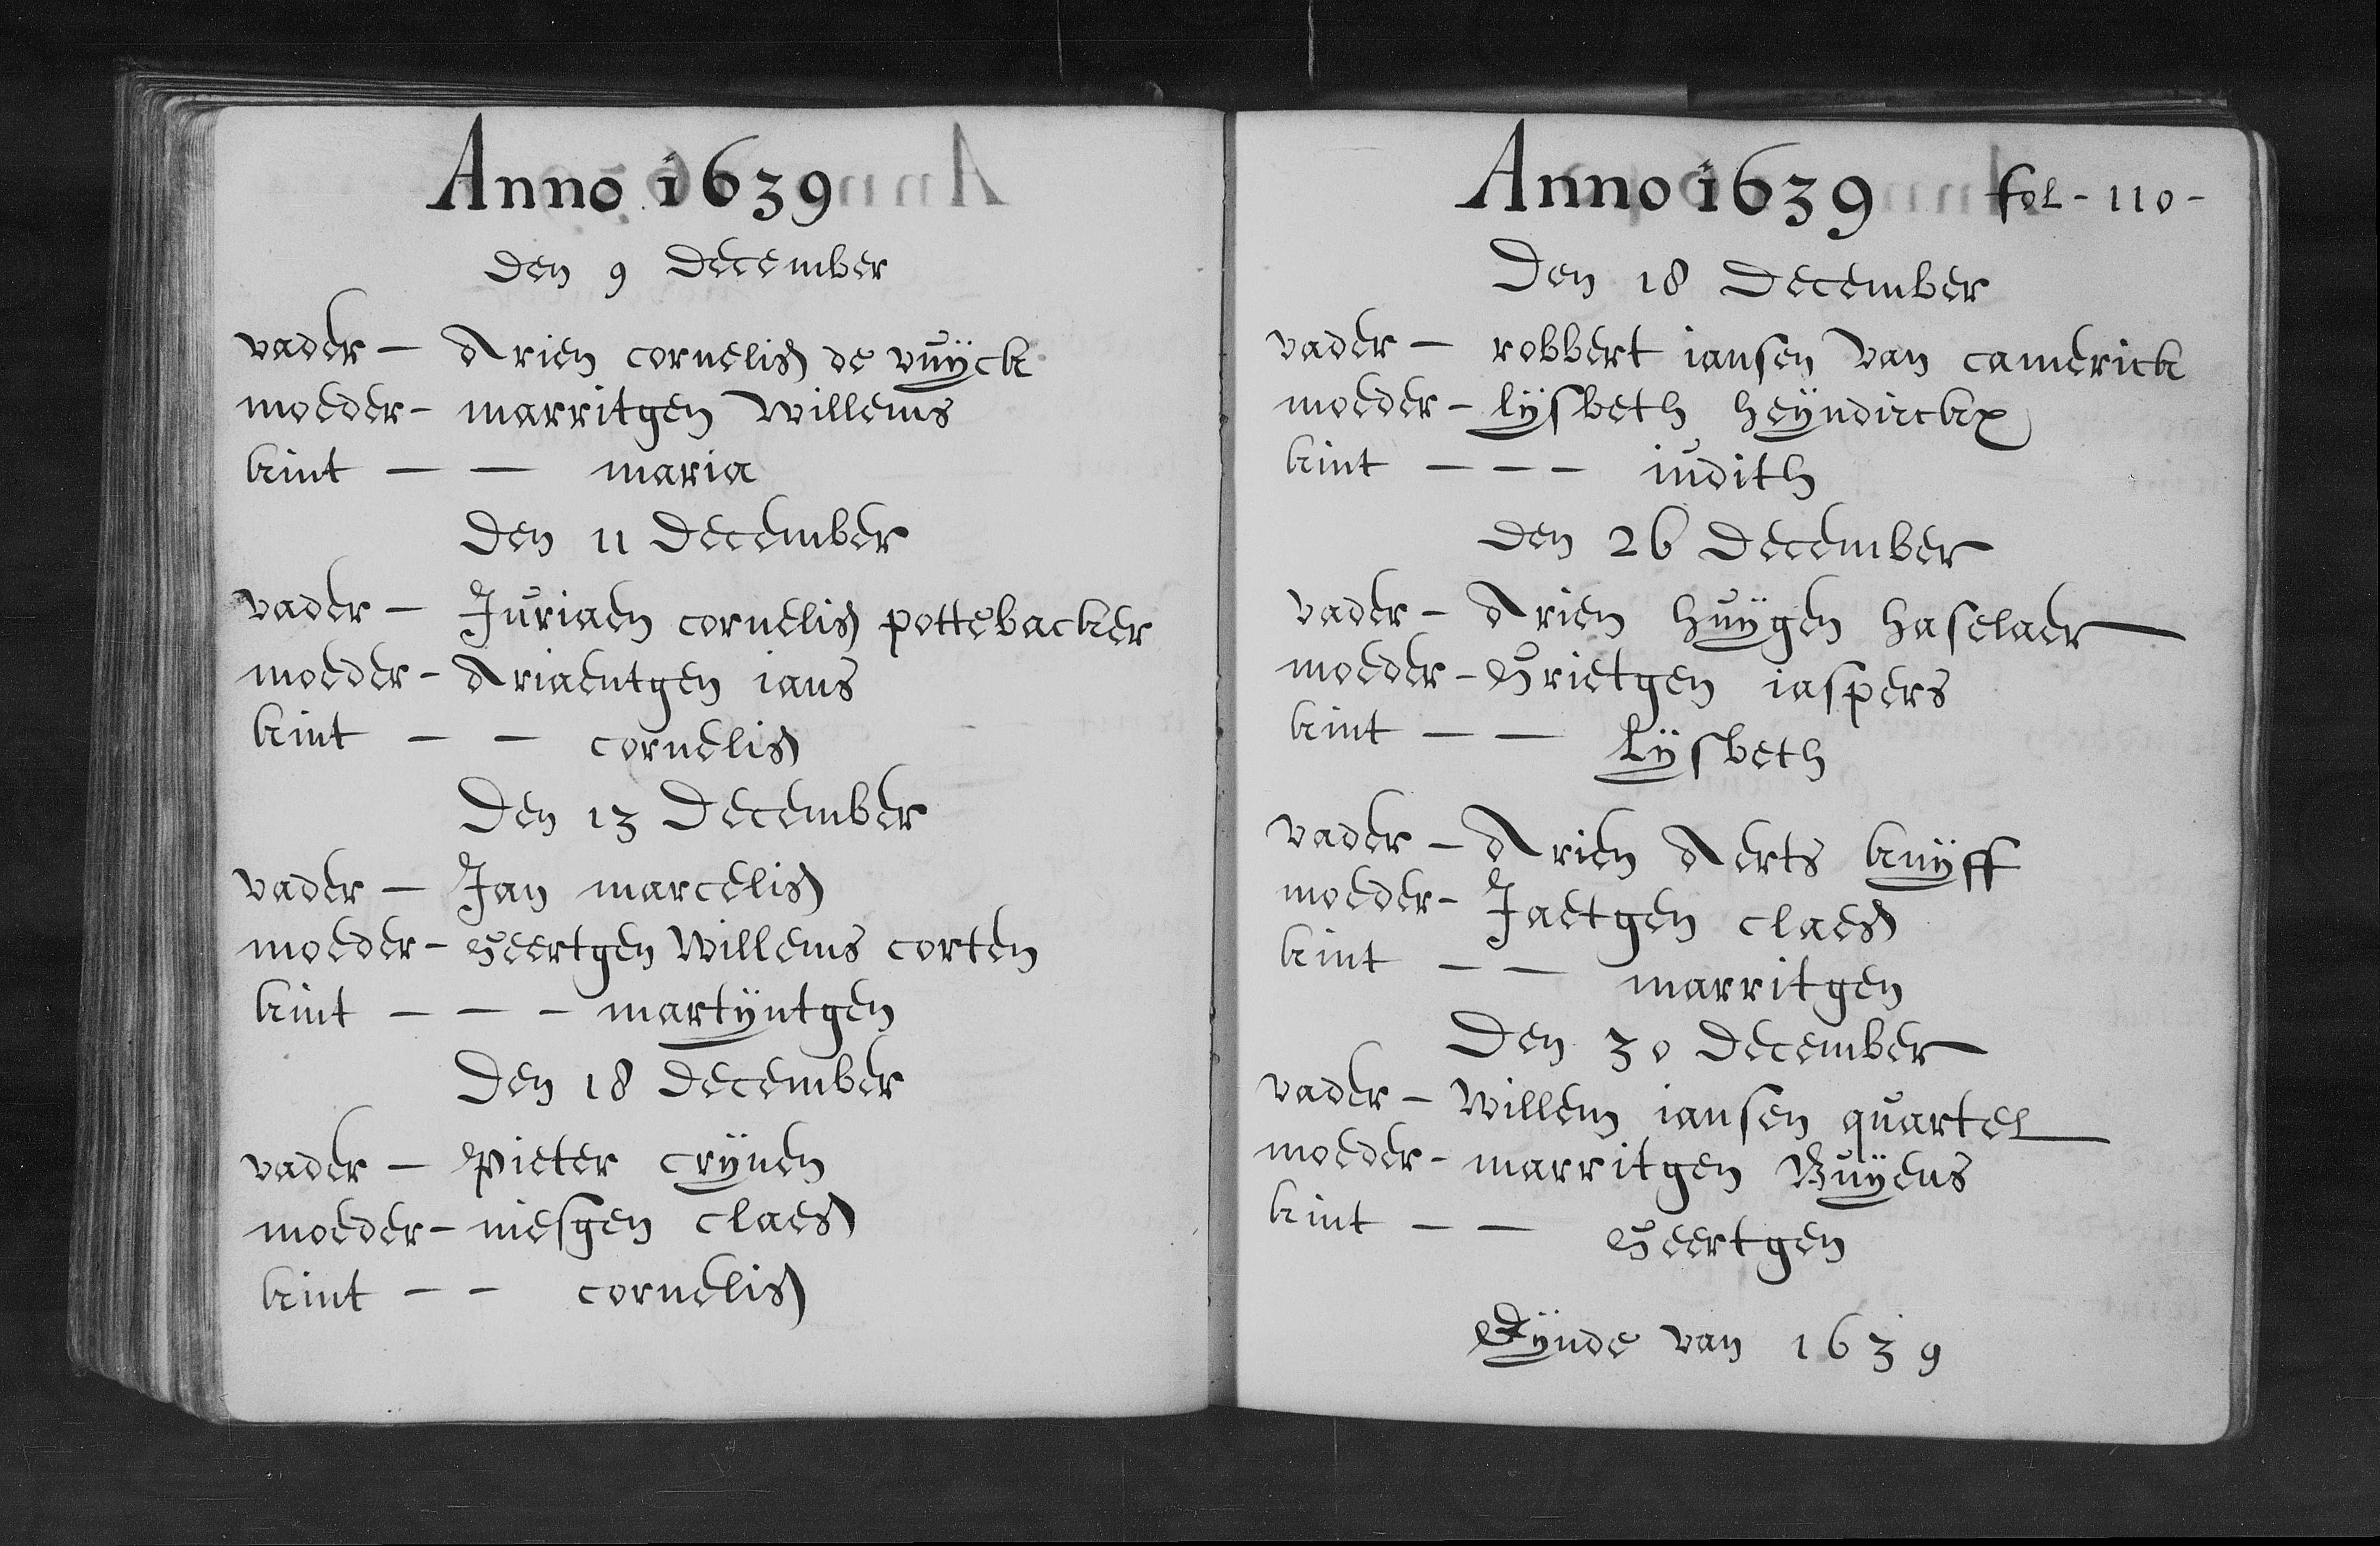 Anno 1639
den 9 December
vader — Arien cornelis de vuÿck
moeder - marritgen Willems
kint — — maria
Den 11 December
vader — Juriaen cornelis pottebacker
moeder - Ariaentgen ians
kint — — cornelis
Den 13 December
vader — Jan marcelis
moeder - Geertgen Willems corten
kint — — - martÿntgen
Den 18 December
vader — Pieter crÿnen
moeder - niesgen claes
kint — — cornelis
Anno 1639 fol - 110 -
Den 18 December
vader — robbert iansen van camerick
moeder - lÿsbeth heÿndrickx
kint — — — iudith
den 26 December
vader - Arien huÿgen haselaer
moeder - Grietgen iaspers
kint — — Lÿsbeth
vader — Arien Aerts knÿff
moeder - Jaetgen claes
kint — — marritgen
Den 30 December
vader — Willem iansen quartel
moeder - marritgen Buÿens
kint — — Geertgen
Eÿnde van 1639